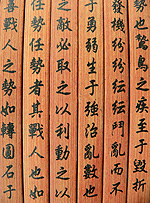 勢也鷙鳥之疾至于毀折
發機紛紛紜紜鬥亂而不
于勇弱生于強治亂數也
之敵必取之以利動之以
任勢任勢者其戰人也
善戰人之勢如轉圓石于